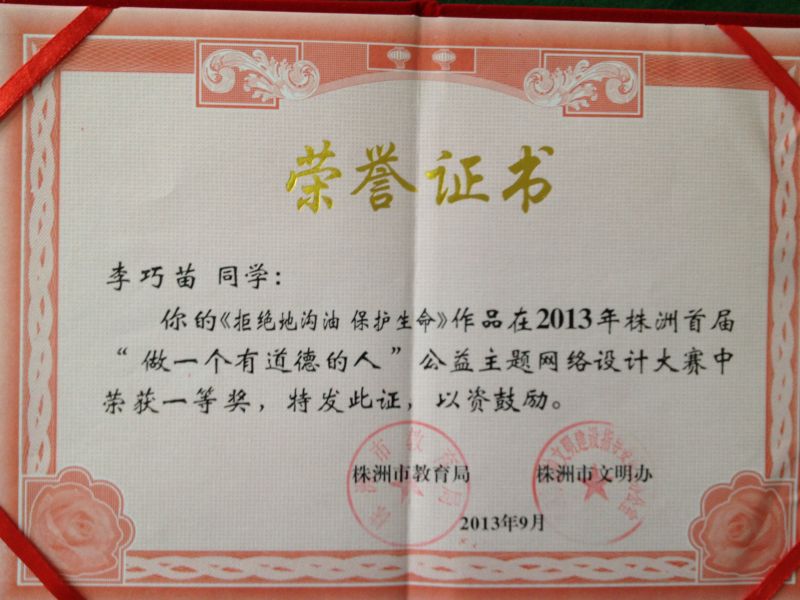 荣誉证书
李巧苗 同学：
你的《拒绝地沟油 保护生命》作品在2013年株洲首届
“做一个有道德的人”公益主题网络设计大赛中
荣获一等奖，特发此证，以资鼓励。
株洲市教育局 株洲市文明办
2013年9月
株洲市教育局